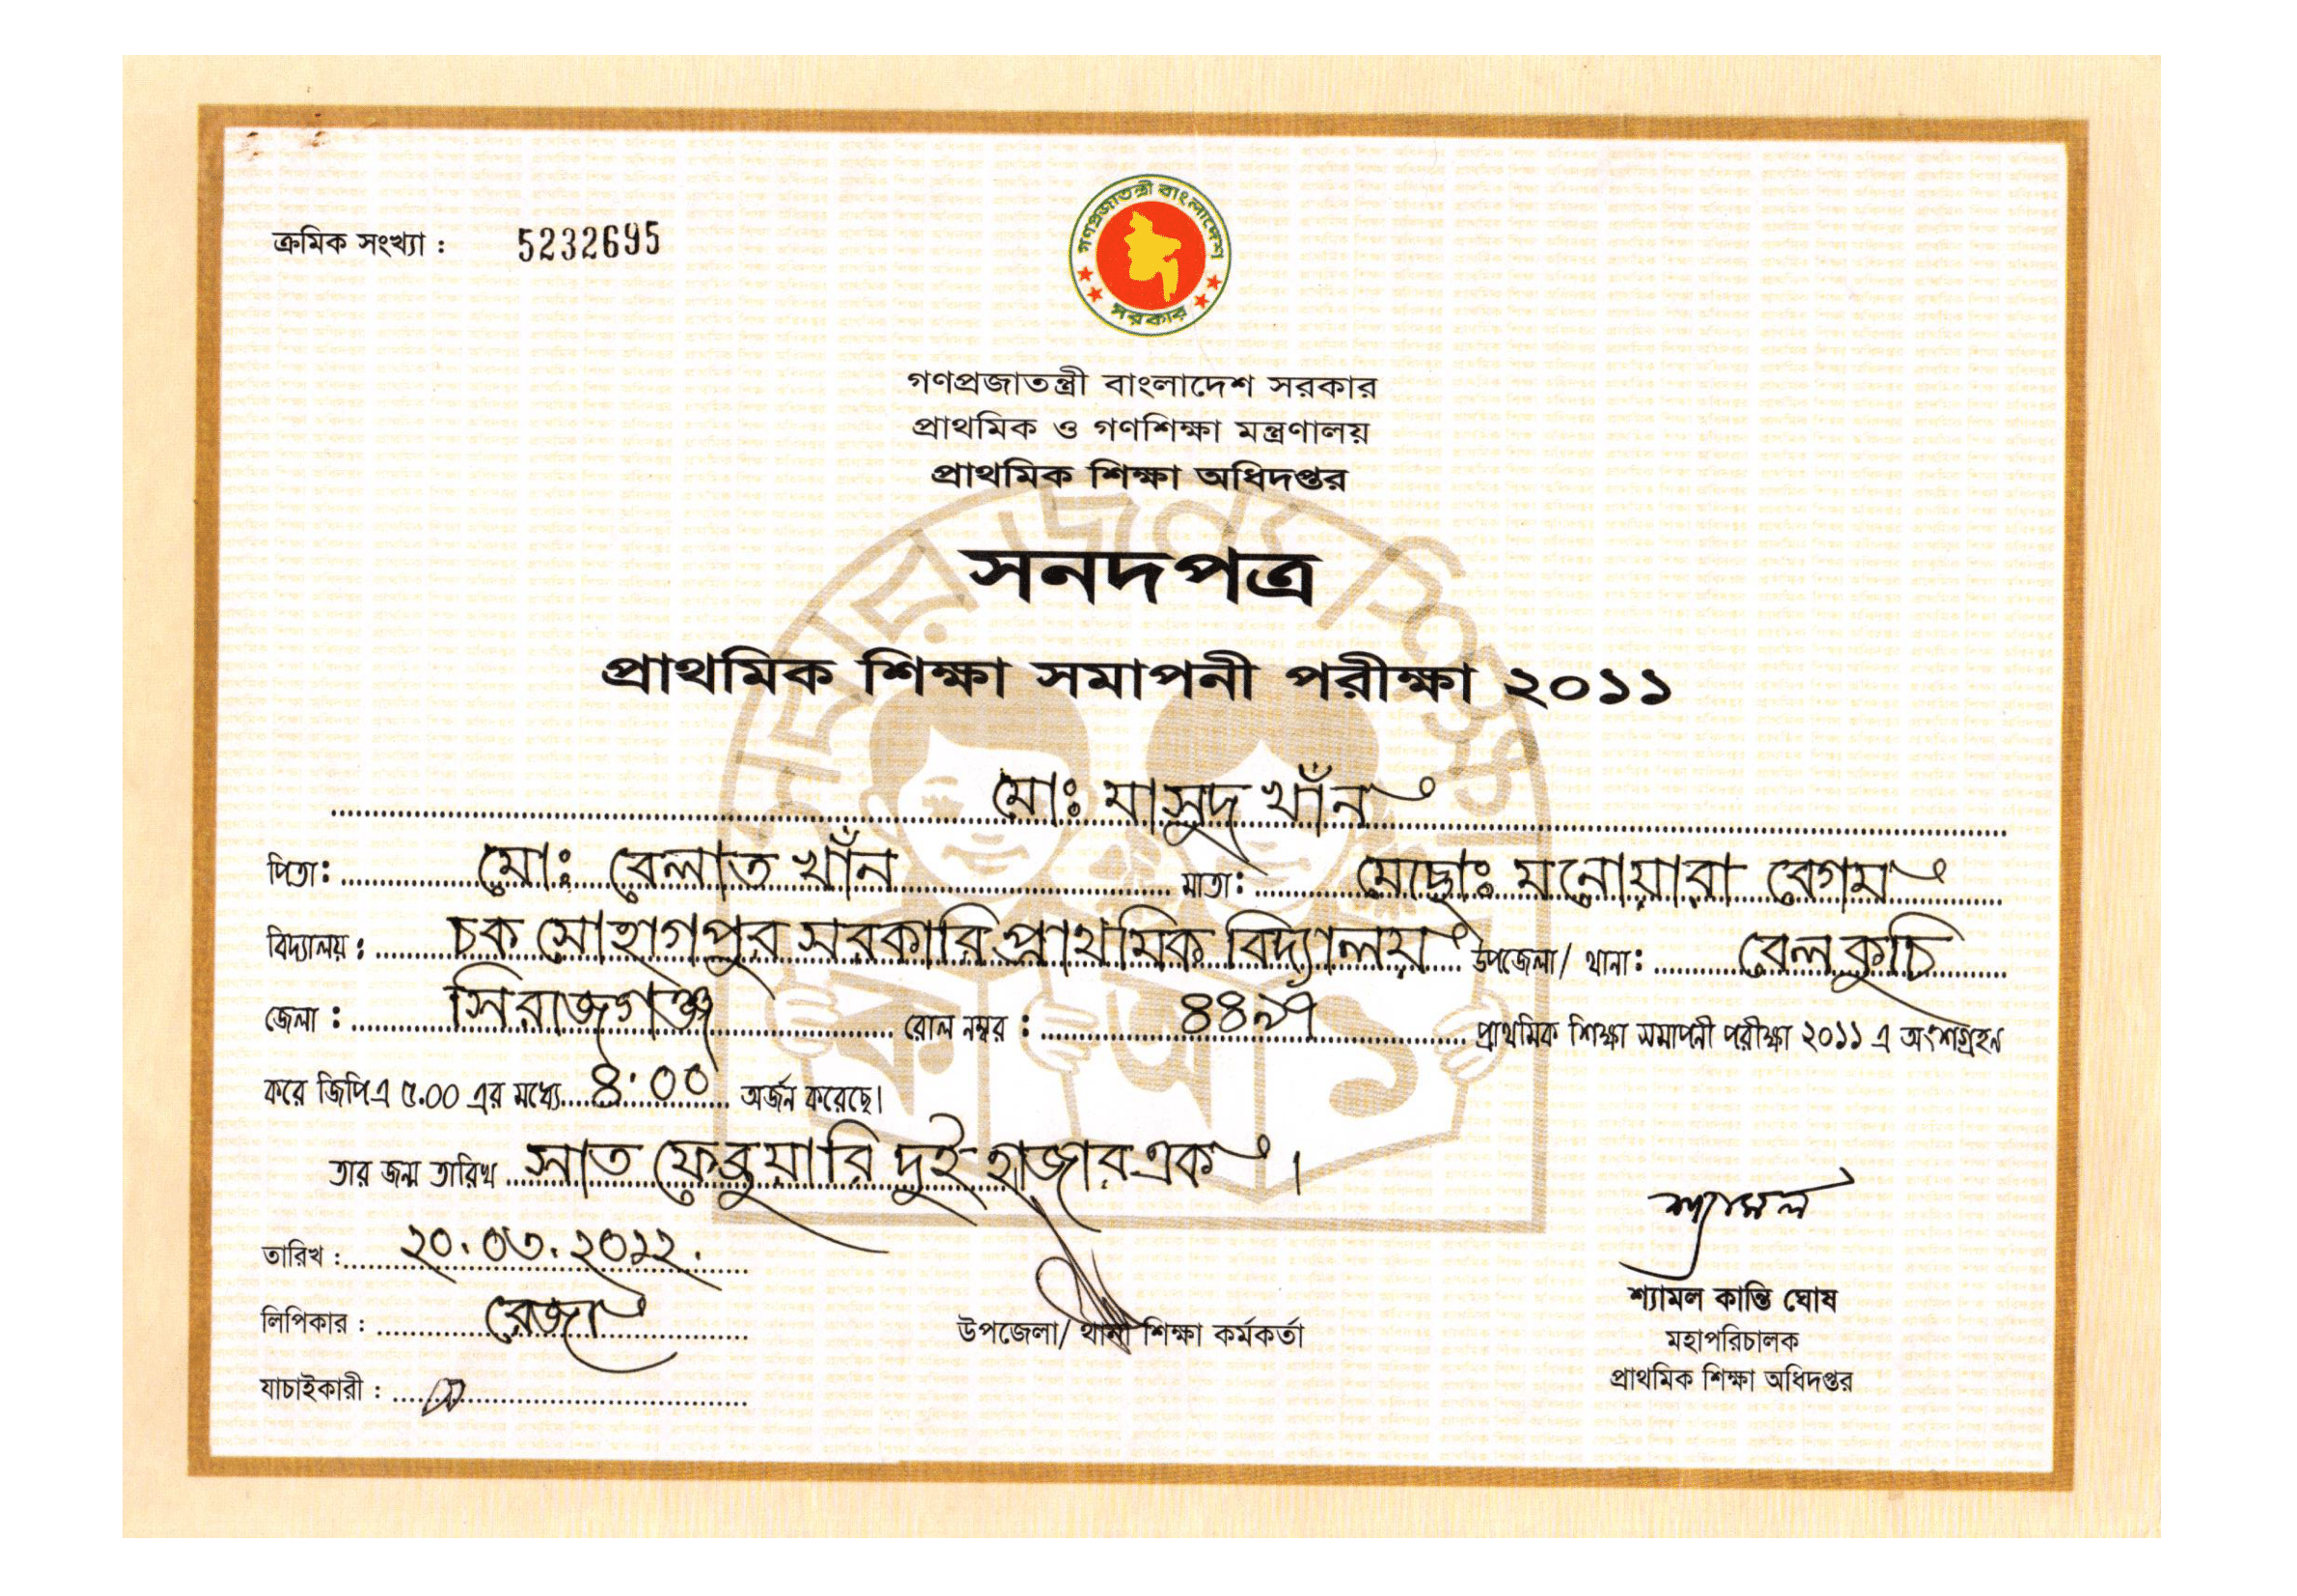 ক্রমিক সংখ্যা : 5232695
গণপ্রজাতন্ত্রী বাংলাদেশ
সরকার
গণপ্রজাতন্ত্রী বাংলাদেশ সরকার
প্রাথমিক ও গণশিক্ষা মন্ত্রণালয়
প্রাথমিক শিক্ষা অধিদপ্তর
সনদপত্র
প্রাথমিক শিক্ষা সমাপনী পরীক্ষা ২০১১
মোঃ মাসুদ খাঁন
পিতা: মোঃ বেলাত খাঁন মাতা: মোছোঃ মনোয়ারা বেগম
বিদ্যালয় : চক সোহাগপুর সরকারি প্রাথমিক বিদ্যালয় উপজেলা/ থানা: বেলকুচি
জেলা : সিরাজগঞ্জ রোল নম্বর : প্রাথমিক শিক্ষা সমাপনী পরীক্ষা ২০১১ এ অংশগ্রহণ
করে জিপিএ ৫.০০ এর মধ্যে ৪.০০ অর্জন করেছে।
তার জন্ম তারিখ সাত ফেব্রুয়ারি দুই হাজার এক ।
তারিখ : ২০.০৩.২০১২.
লিপিকার : রেজা
যাচাইকারী :
উপজেলা/ থানা শিক্ষা কর্মকর্তা
শ্যামল
শ্যামল কান্তি ঘোষ
মহাপরিচালক
প্রাথমিক শিক্ষা অধিদপ্তর